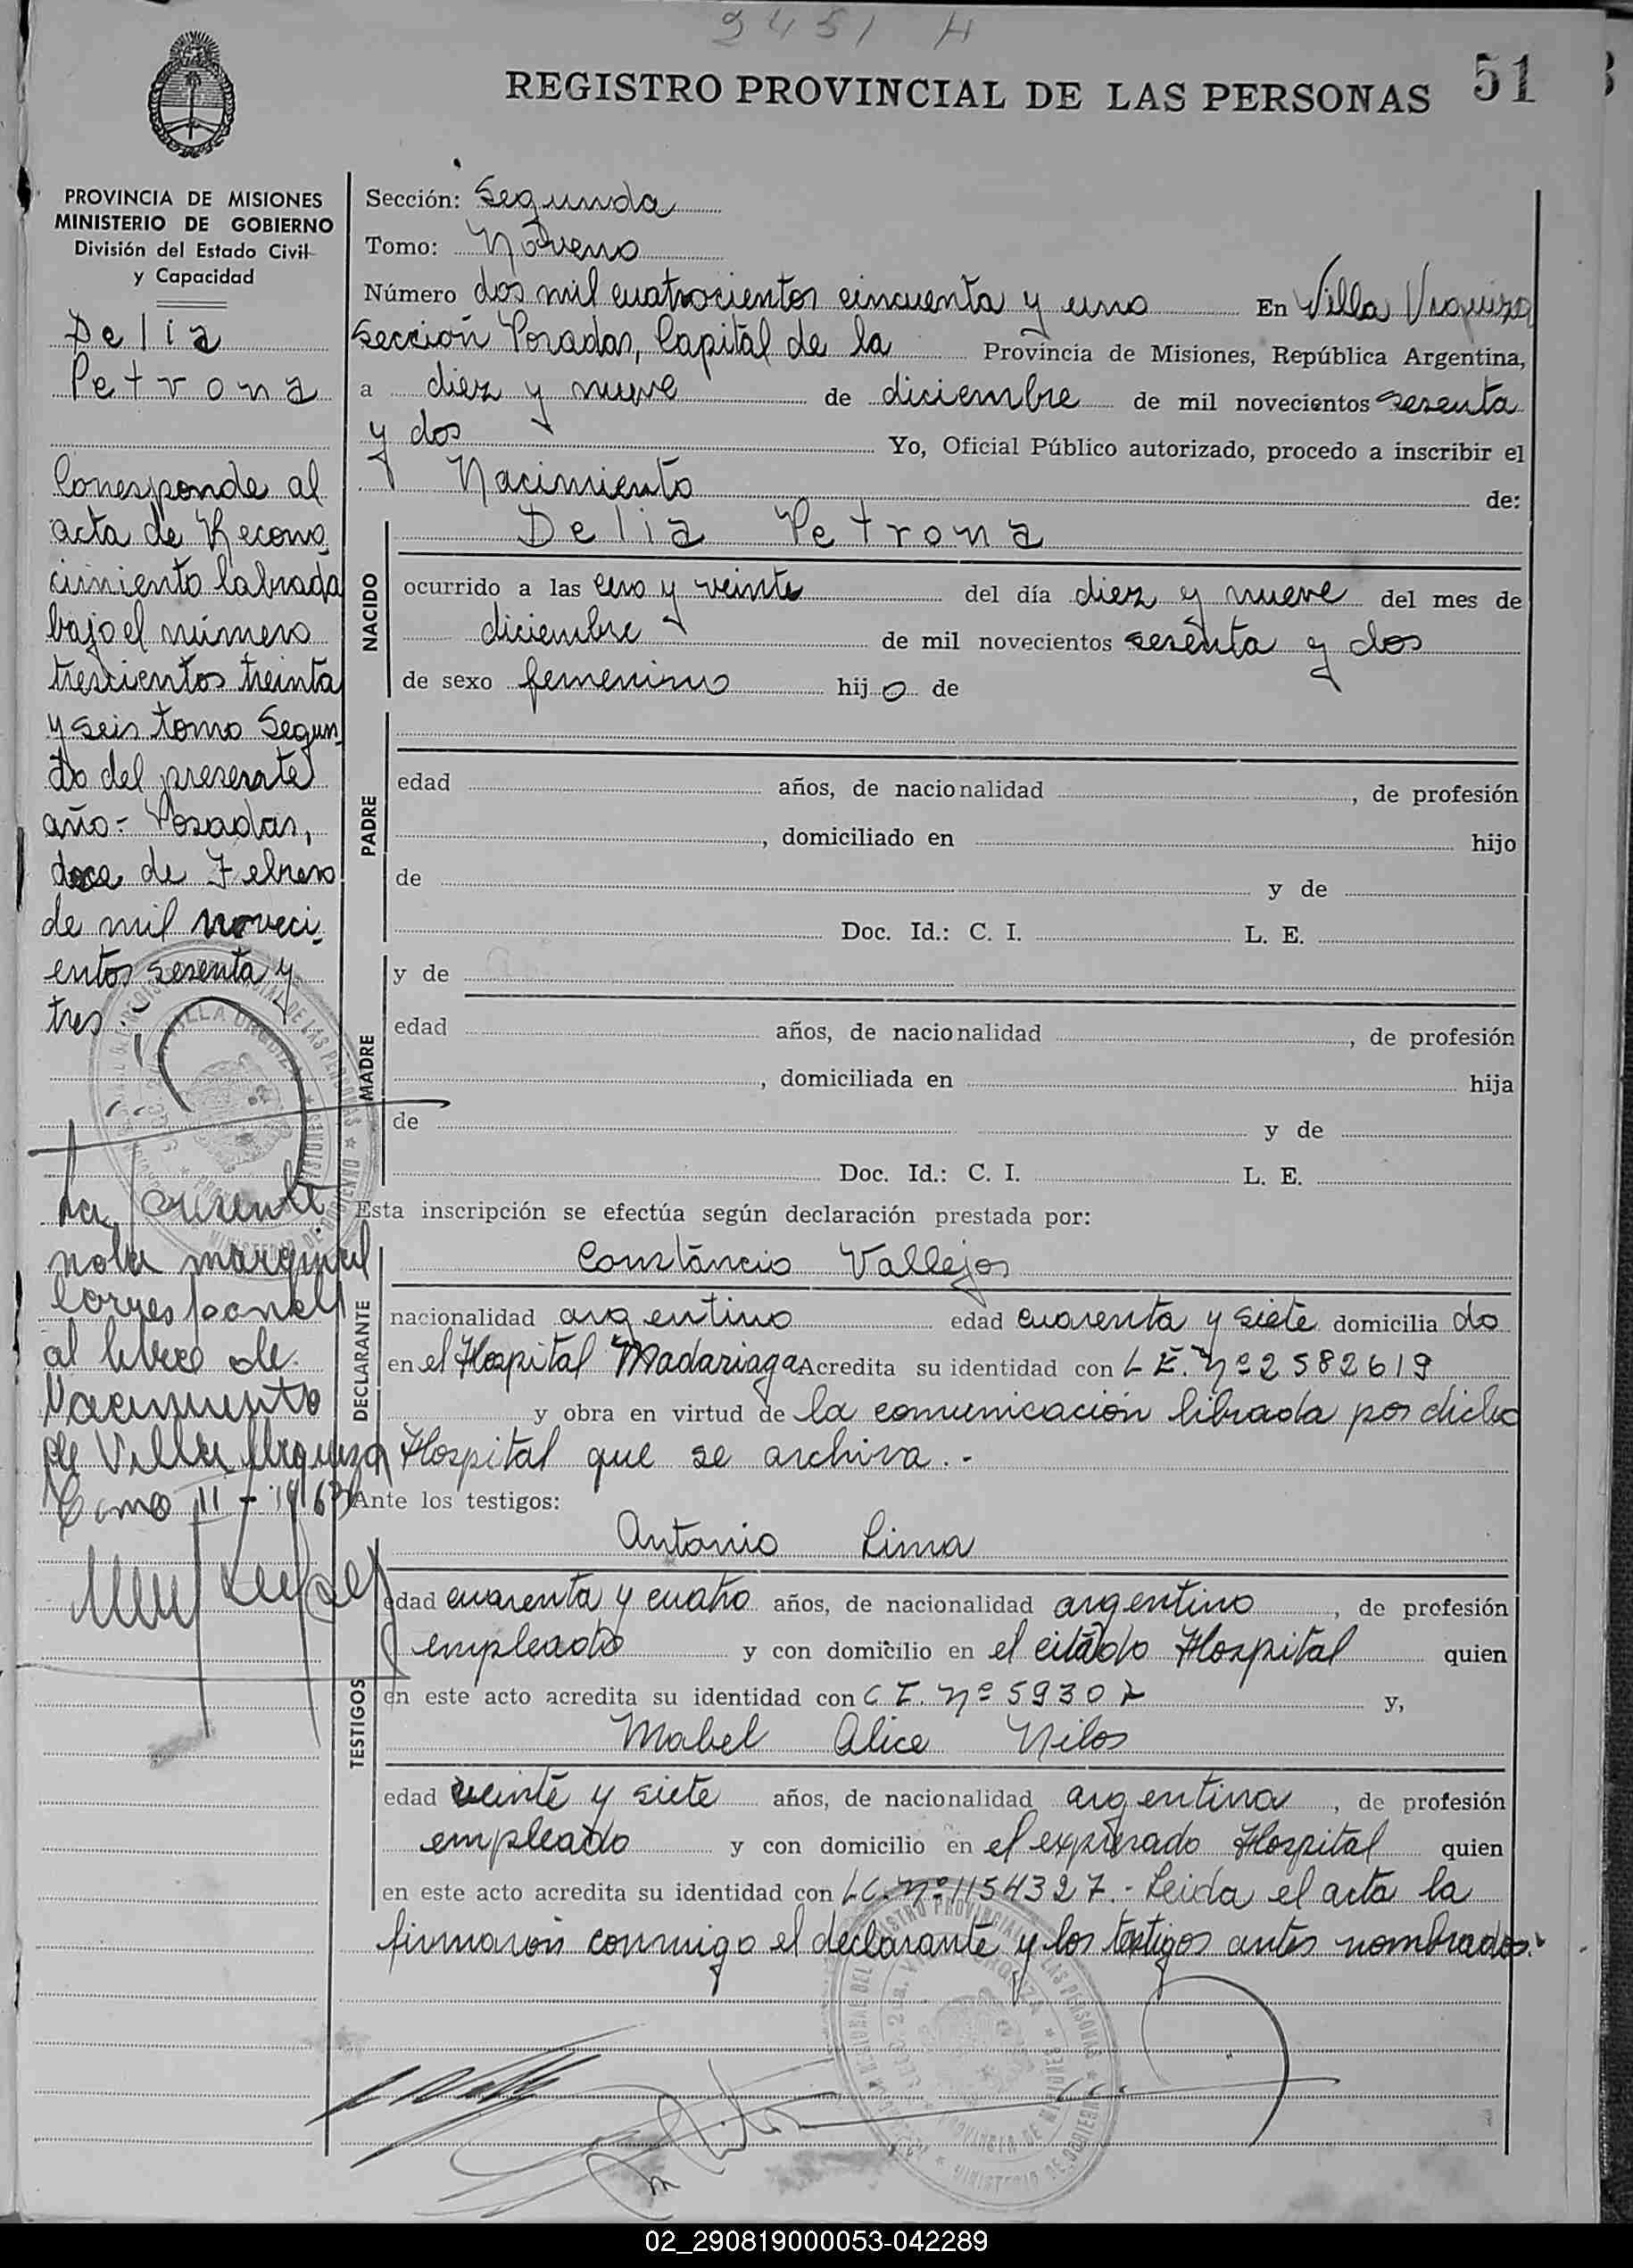 2451 H
REGISTRO PROVINCIAL DE LAS PERSONAS 51
PROVINCIA DE MISIONES
MINISTERIO DE GOBIERNO
División del Estado Civil
y Capacidad
Delia
Petrona
Corresponde al
acta de Recono
cimiento labrada
bajo el número
trescientos treinta
y seis tomo Segun
do del presente
año.- Posadas,
doce de Febrero
de mil noveci
entos sesenta y
tres.-
La presente
nota marginal
corresponde
al libro de
Nacimiento
de Villa Urquiza
Tomo II - 1963
Sección: Segunda
Tomo: Noveno
Número dos mil cuatrocientos cincuenta y uno En Villa Urquiza
Sección Posadas, Capital de la Provincia de Misiones, República Argentina,
a diez y nueve de diciembre de mil novecientos sesenta
y dos Yo, Oficial Público autorizado, procedo a inscribir el
Nacimiento de:
NACIDO
Delia Petrona
ocurrido a las cero y veinte del día diez y nueve del mes de
diciembre de mil novecientos sesenta y dos
de sexo femenino hijo de
PADRE
edad años, de nacionalidad , de profesión
, domiciliado en hijo
de y de
Doc. Id.: C. I. L. E.
MADRE
y de
edad años, de nacionalidad , de profesión
, domiciliada en hija
de y de
Doc. Id.: C. I. L. E.
Esta inscripción se efectúa según declaración prestada por:
DECLARANTE
Constancio Vallejos
nacionalidad argentino edad cuarenta y siete domicilia do
en el Hospital Madariaga Acredita su identidad con L E. Nº 2582619
y obra en virtud de la comunicación librada por dicho
Hospital que se archiva.-
Ante los testigos:
TESTIGOS
Antonio Lima
edad cuarenta y cuatro años, de nacionalidad argentino, de profesión
empleado y con domicilio en el citado Hospital quien
en este acto acredita su identidad con C I. Nº 59307 y,
Mabel Alice Nilos
edad veinte y siete años, de nacionalidad argentina, de profesión
empleado y con domicilio en el expresado Hospital quien
en este acto acredita su identidad con L C. Nº 1154327.- Leida el acta la
firmaron conmigo el declarante y los testigos antes nombrados.-
02_290819000053-042289